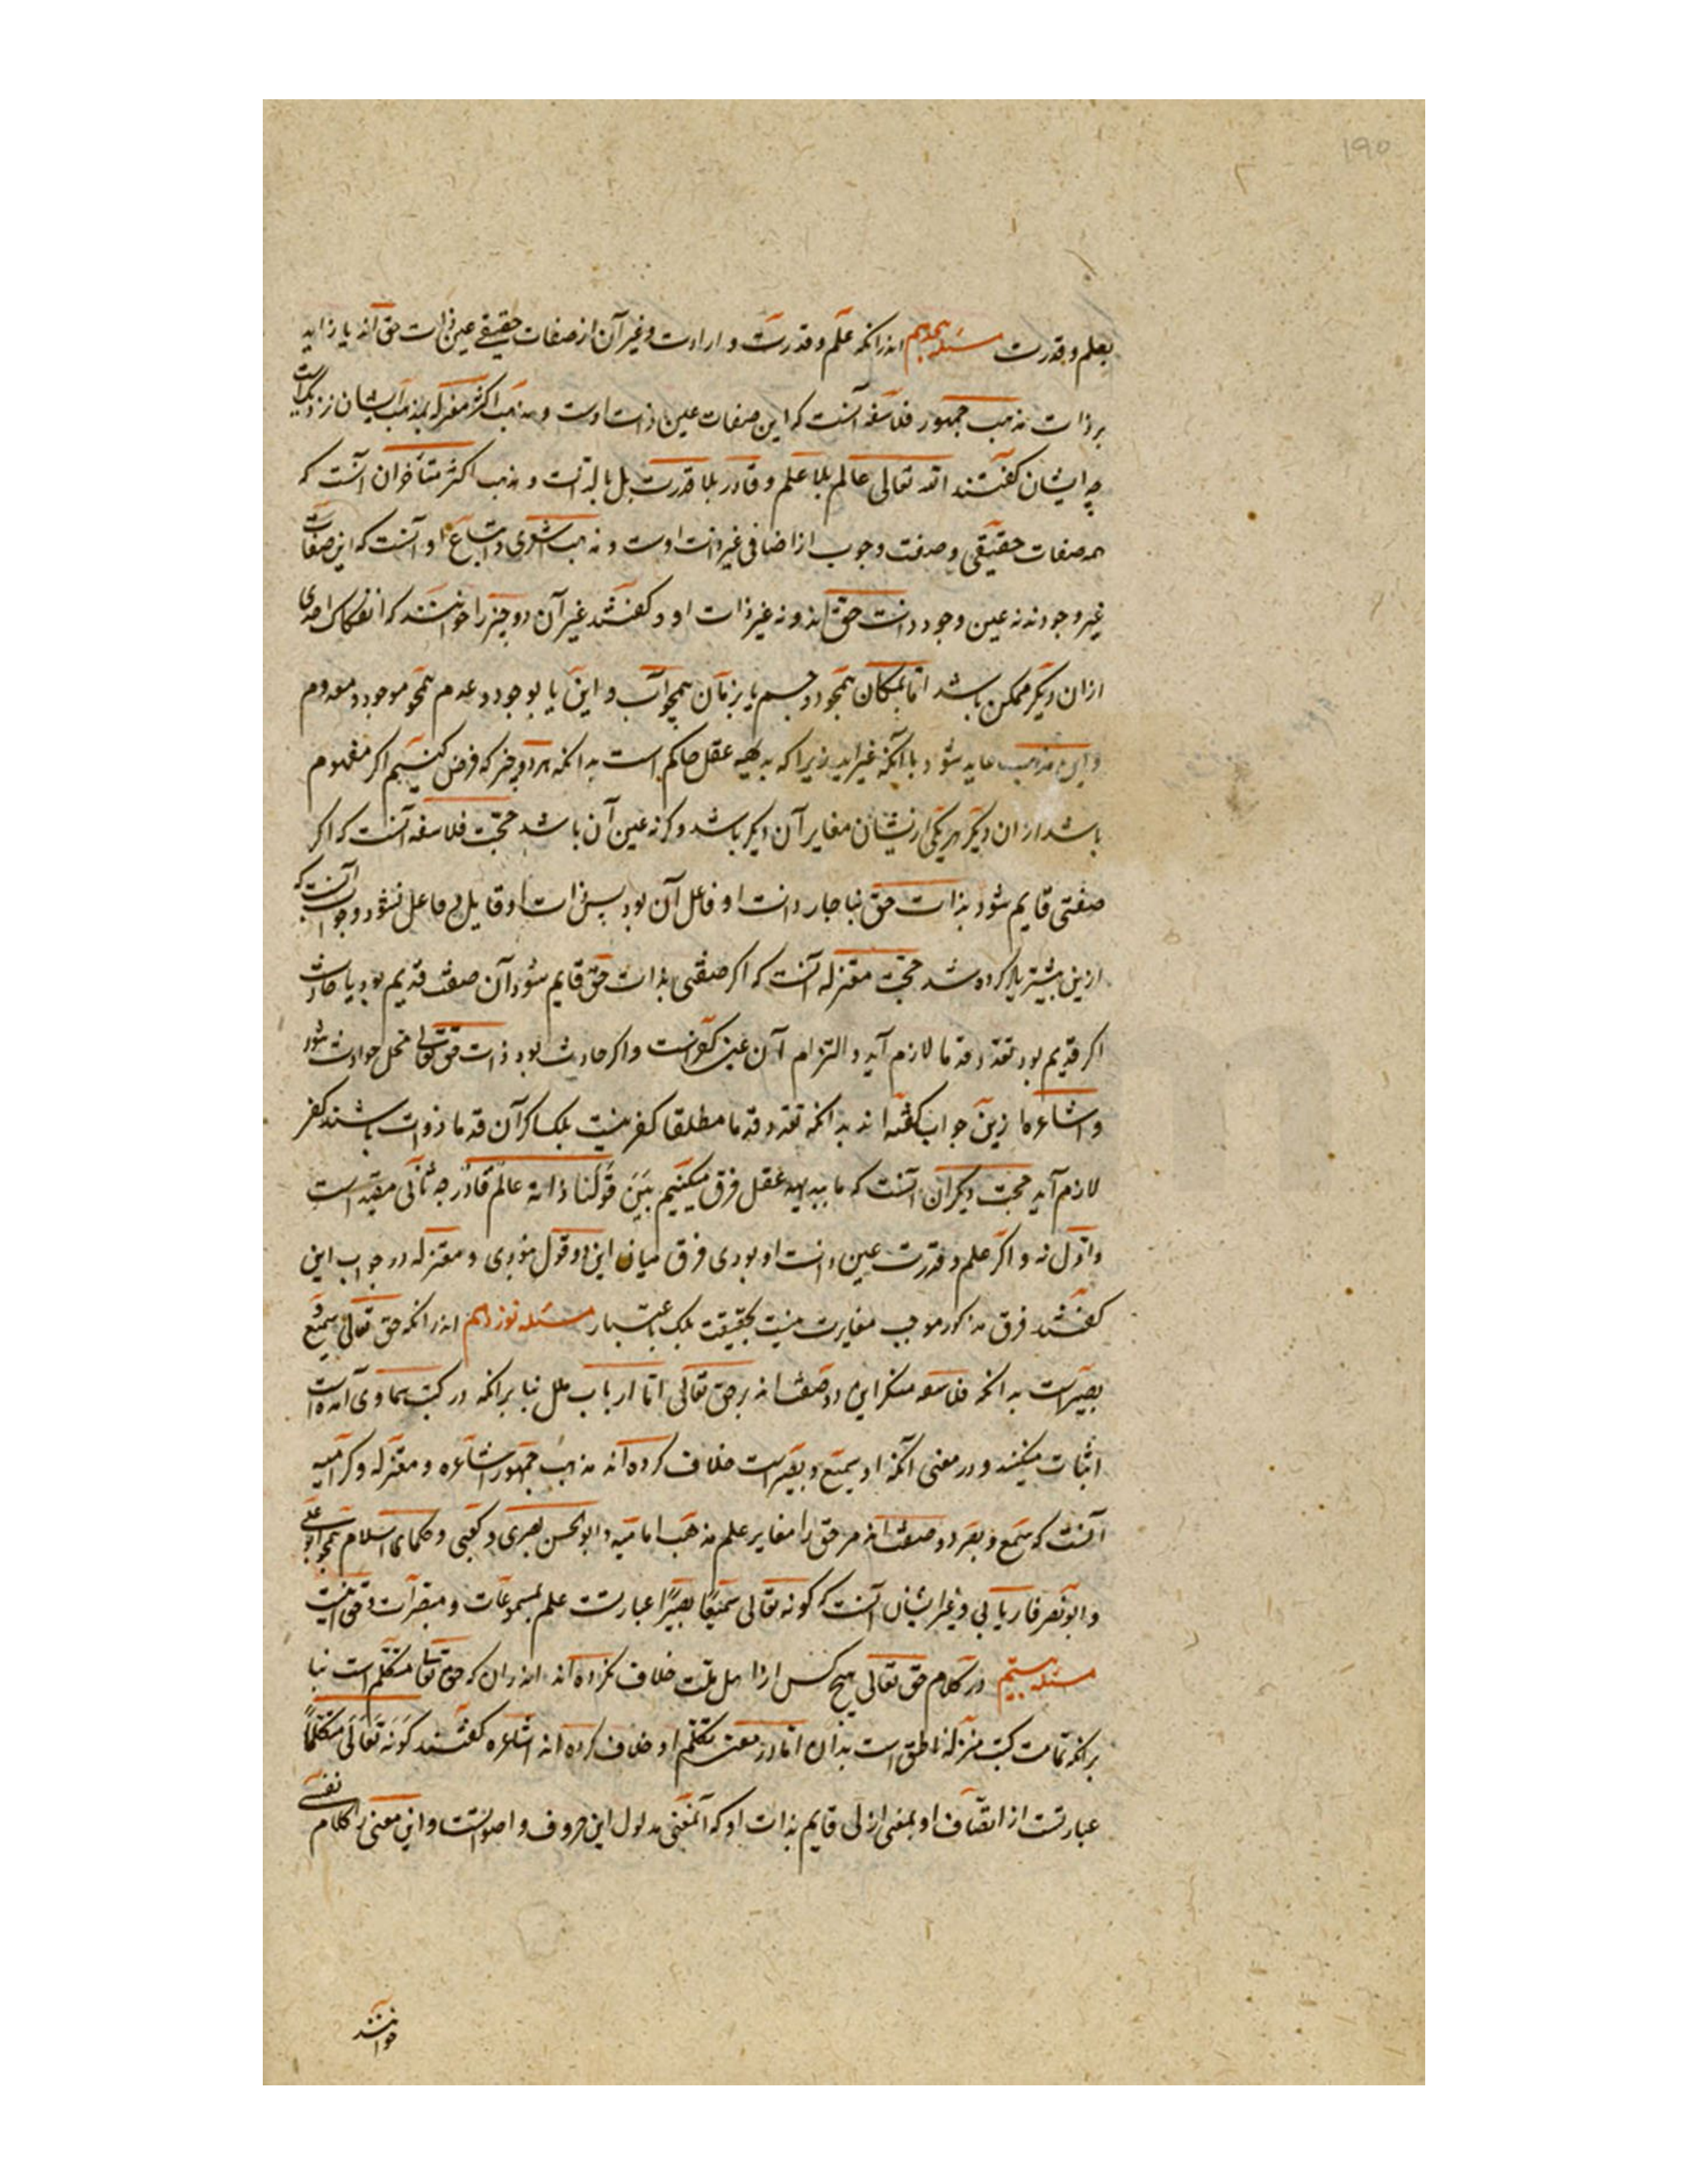 ۱۹۵
بعلم و قدرت مسئله هجدهم اندرانکه علم و قدرت و ارادت و غیر آن از صفات حقیقی عین ذات حق اند یا زاید
بر ذات مذهب جمهور فلاسفه آنست که این صفات عین ذات اوست و مذهب اکثر معتزله بمذهب ایشان نزدیک است
چه ایشان گفتند الله تعالی عالم بلا علم و قادر بلا قدرت بل بالذات و مذهب اکثر متأخران آنست که
همه صفات حقیقی و صفت وجوب از اضافی غیر ذات اوست و مذهب اشعری و اتباع او آنست که این صفات
غیر وجودند نه عین وجود ذات حق اند و نه غیر ذات او و گفتند غیر آن دو چیز را خوانند که انفکاک احدی
ازان دیگر ممکن باشد اما بمکان همچو دو جسم یا بزمان همچو اب و ابن یا بوجود و عدم همچو موجود و معدوم
و این مذهب عاید شود بآنکه غیراند زیرا که بدیهه عقل حاکم است بدانکه هر دو چیز که فرض کنیم اگر مفهوم
باشد ازان دیگر هر یکی ازیشان مغایر آن دیگر باشد و کرنه عین آن باشد حجت فلاسفه آنست که اگر
صفتی قایم شود بذات حق بناچار ذات او فاعل آن بود پس ذات او قابل و فاعل نشود و جواب آنست که
ازین پیشتر یاد کرده شد حجت معتزله آنست که اگر صفتی بذات حق قایم شود آن صفت قدیم بود یا حادث
اگر قدیم بود تعدد قدما لازم آید و التزام آن عین کفرانست و اگر حادث بود ذات حق تعالی محل حوادث شود
و اشاعره ازین جواب گفته اند بدانکه تعدد قدما مطلقا کفر نیست بلکه اگر آن قدما ذوات باشند کفر
لازم آید حجت دیگران آنست که ما ببدیهه عقل فرق میکنیم بین قولنا ذاته عالم قادر چه ثانی مقید است
و اول نه و اگر علم و قدرت عین ذات او بودی فرق میان این دو قول نبودی و معتزله در جواب این
گفتند فرق مذکور موجب مغایرت نیست بحقیقت بلکه باعتبار مسئله نوزدهم اندرانکه حق تعالی سمیع و
بصیرست بدانکه فلاسفه منکر این دو صفت اند بر حق تعالی اما ارباب ملل بنا برانکه در کتب سماوی آمده است
اثبات میکنند و در معنی آنکه او سمیع و بصیر است خلاف کرده اند مذهب جمهور اشاعره و معتزله و کرامیه
آنست که سمع و بصر دو صفت اند مر حق را مغایر علم مذهب امامیه و ابوالحسن بصری و کعبی و حکمای اسلام همچو ابو علی
و ابو نصر فاریابی و غیر ایشان آنست که کونه تعالی سمیعا بصیرا عبارتست علم بمسموعات و مبصرات و حق اینست
مسئله بیستم در کلام حق تعالی هیچ کس از اهل ملت خلاف نکرده اند اندران که حق تعالی متکلم است بنا
برانکه تمامت کتب منزله ناطق است بدان اما در معنی تکلم او خلاف کرده اند اشاعره گفتند کونه تعالی متکلما
عبارتست از اتصاف او بمعنی ازلی قایم بذات او که آنمعنی مدلول این حروف و اصواتست و این معنی را کلام نفسی
خوانند